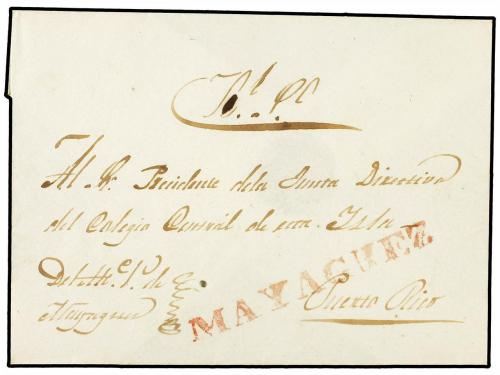 Rl. Sl.
Al Sr. Precidente dela Junta Directiva
del Colegio Central de esta Isla
Del Alce. 1o. de
Mayaguez
MAYAGUEZ
Puerto Rico